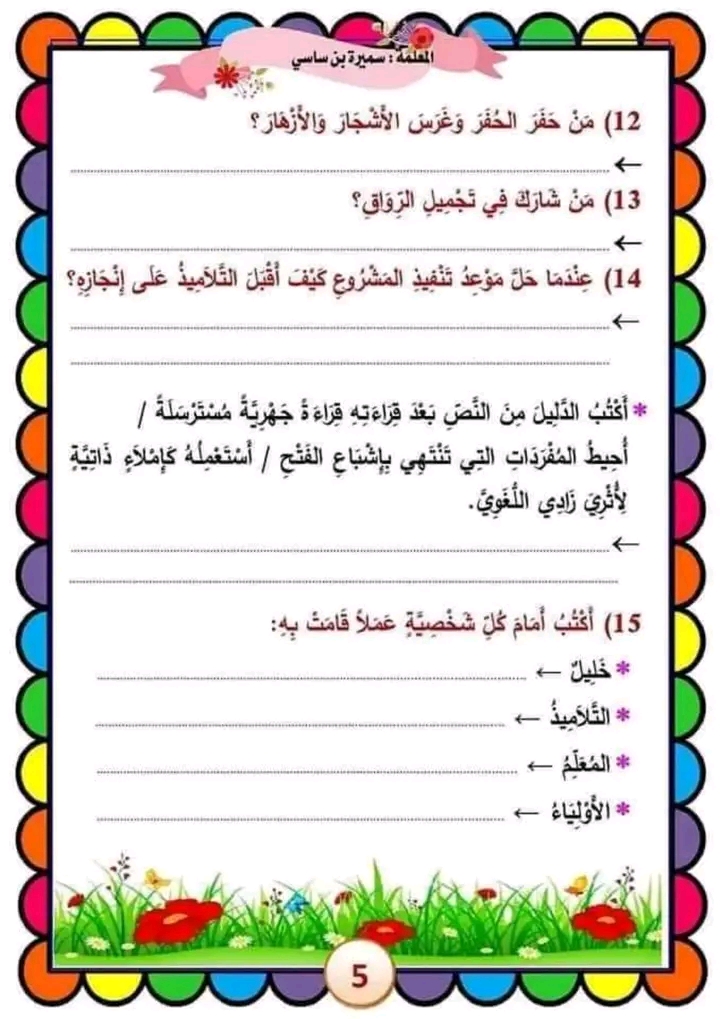 المعلمة : سميرة بن ساسي
12) مَنْ حَفَرَ الحُفَرَ وَغَرَسَ الأَشْجَارَ وَالأَزْهَارَ؟
←
13) مَنْ شَارَكَ فِي تَجْمِيلِ الرِّوَاقِ؟
←
14) عِنْدَمَا حَلَّ مَوْعِدُ تَنْفِيذِ المَشْرُوعِ كَيْفَ أَقْبَلَ التَّلَامِيذُ عَلَى إِنْجَازِهِ؟
←
* أَكْتُبُ الدَّلِيلَ مِنَ النَّصِّ بَعْدَ قِرَاءَتِهِ قِرَاءَةً جَهْرِيَّةً مُسْتَرْسَلَةً /
أُحِيطُ المُفْرَدَاتِ التِي تَنْتَهِي بِإِشْبَاعِ الفَتْحِ / أَسْتَعْمِلُهُ كَإِمْلَاءٍ ذَاتِيَّةٍ
لِأُثْرِيَ زَادِي اللُّغَوِيَّ.
←
15) أَكْتُبُ أَمَامَ كُلِّ شَخْصِيَّةٍ عَمَلاً قَامَتْ بِهِ:
* خَلِيلٌ ←
* التَّلَامِيذُ ←
* المُعَلِّمُ ←
* الأَوْلِيَاءُ ←
5